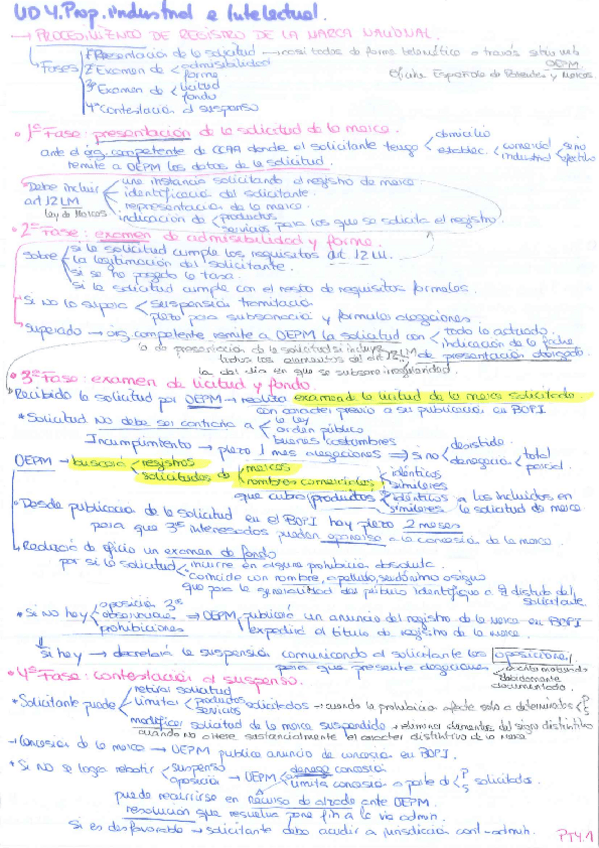 UD 4. Prop. industrial e Intelectual.
→ PROCEDIMIENTO DE REGISTRO DE LA MARCA NACIONAL.
Fases
1ª Presentación de la solicitud → casi todos de forma telemática a través sitio web OEPM.
Oficina Española de Patentes y Marcas.
2ª Examen de < admisibilidad
forma
3ª Examen de < licitud
fondo
4ª Contestación al suspenso
• 1ª Fase: presentación de la solicitud de la marca.
ante el órg. competente de CCAA donde el solicitante tenga < domicilio
establec. < comercial
industrial < serio
efectivo
remite a OEPM los datos de la solicitud.
Debe incluir
art 12 LM
Ley de Marcas
una instancia solicitando el registro de marca
identificación del solicitante.
representación de la marca.
indicación de < productos
servicios para los que se solicita el registro.
• 2ª Fase: examen de admisibilidad y forma.
sobre
si la solicitud cumple los requisitos art. 12 LM.
la legitimación del solicitante.
si se ha pagado la tasa.
si la solicitud cumple con el resto de requisitos formales.
si no lo supera < suspensión tramitación
plazo para subsanación y formular alegaciones.
superado → órg. competente remite a OEPM la solicitud con < todo lo actuado.
indicación de la fecha de presentación otorgada.
la de presentación de la solicitud si incluye todos los elementos del art. 12 LM
la del día en que se subsane irregularidad.
• 3ª Fase: examen de licitud y fondo.
Recibida la solicitud por OEPM → realiza examen de la licitud de la marca solicitada.
con carácter previo a su publicación en BOPI
* Solicitud no debe ser contraria a < la ley
orden público
buenas costumbres
Incumplimiento → plazo 1 mes alegaciones ⇒ si no < desistida.
denegación < total
parcial.
OEPM → buscará < registros
solicitudes de < marcas
nombres comerciales < idénticos
similares
que cubra < productos < idénticos
similares a los incluidos en la solicitud de marca.
• Desde publicación de la solicitud en el BOPI hay plazo 2 meses
para que 3os interesados puedan oponerse a la concesión de la marca.
Realizará de oficio un examen de fondo
por si la solicitud < incurre en alguna prohibición absoluta.
coincide con nombre, apellido, seudónimo o signo
que para la generalidad del público identifique a 1 distinto del solicitante.
* Si no hay < oposición 3os
observaciones
prohibiciones ⇒ OEPM < publicará un anuncio del registro de la marca en BOPI
expedirá el título de registro de la marca.
si hay → decretará la suspensión comunicando al solicitante las oposiciones
para que presente alegaciones
debidamente documentada.
• 4ª Fase: contestación al suspenso.
* Solicitante puede
retirar solicitud
limitar < productos
servicios solicitados → cuando la prohibición afecte solo a determinados < P
S
modificar solicitud de la marca suspendida → eliminar elementos del signo distintivo
cuando no altere sustancialmente el carácter distintivo de la marca
→ Concesión de la marca → OEPM publica anuncio de concesión en BOPI.
* Si NO se logra rebatir < suspenso
oposición → OEPM < deniega concesión
limita concesión a parte de < P
S solicitados.
puede recurrirse en recurso de alzada ante OEPM.
resolución que resuelva pone fin a la vía admin.
si es desfavorable → solicitante debe acudir a jurisdicción cont-admin.
PT4.1